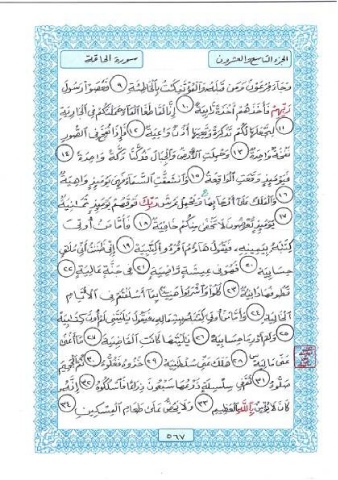 الجزء التاسع والعشرون
سورة الحاقة
وَجَاءَ فِرْعَوْنُ وَمَن قَبْلَهُ وَالْمُؤْتَفِكَاتُ بِالْخَاطِئَةِ ٩ فَعَصَوْا رَسُولَ
رَبِّهِمْ فَأَخَذَهُمْ أَخْذَةً رَّابِيَةً ١٠ إِنَّا لَمَّا طَغَا الْمَاءُ حَمَلْنَاكُمْ فِي الْجَارِيَةِ
١١ لِنَجْعَلَهَا لَكُمْ تَذْكِرَةً وَتَعِيَهَا أُذُنٌ وَاعِيَةٌ ١٢ فَإِذَا نُفِخَ فِي الصُّورِ
نَفْخَةٌ وَاحِدَةٌ ١٣ وَحُمِلَتِ الْأَرْضُ وَالْجِبَالُ فَدُكَّتَا دَكَّةً وَاحِدَةً ١٤
فَيَوْمَئِذٍ وَقَعَتِ الْوَاقِعَةُ ١٥ وَانشَقَّتِ السَّمَاءُ فَهِيَ يَوْمَئِذٍ وَاهِيَةٌ
١٦ وَالْمَلَكُ عَلَى أَرْجَائِهَا وَيَحْمِلُ عَرْشَ رَبِّكَ فَوْقَهُمْ يَوْمَئِذٍ ثَمَانِيَةٌ
١٧ يَوْمَئِذٍ تُعْرَضُونَ لَا تَخْفَى مِنكُمْ خَافِيَةٌ ١٨ فَأَمَّا مَنْ أُوتِيَ
كِتَابَهُ بِيَمِينِهِ فَيَقُولُ هَاؤُمُ اقْرَءُوا كِتَابِيَهْ ١٩ إِنِّي ظَنَنتُ أَنِّي مُلَاقٍ
حِسَابِيَهْ ٢٠ فَهُوَ فِي عِيشَةٍ رَّاضِيَةٍ ٢١ فِي جَنَّةٍ عَالِيَةٍ ٢٢
قُطُوفُهَا دَانِيَةٌ ٢٣ كُلُوا وَاشْرَبُوا هَنِيئًا بِمَا أَسْلَفْتُمْ فِي الْأَيَّامِ
الْخَالِيَةِ ٢٤ وَأَمَّا مَنْ أُوتِيَ كِتَابَهُ بِشِمَالِهِ فَيَقُولُ يَالَيْتَنِي لَمْ أُوتَ كِتَابِيَهْ
٢٥ وَلَمْ أَدْرِ مَا حِسَابِيَهْ ٢٦ يَالَيْتَهَا كَانَتِ الْقَاضِيَةَ ٢٧ مَا أَغْنَى
عَنِّي مَالِيَهْ ٢٨ هَلَكَ عَنِّي سُلْطَانِيَهْ ٢٩ خُذُوهُ فَغُلُّوهُ ٣٠ ثُمَّ الْجَحِيمَ
صَلُّوهُ ٣١ ثُمَّ فِي سِلْسِلَةٍ ذَرْعُهَا سَبْعُونَ ذِرَاعًا فَاسْلُكُوهُ ٣٢ إِنَّهُ
كَانَ لَا يُؤْمِنُ بِاللَّهِ الْعَظِيمِ ٣٣ وَلَا يَحُضُّ عَلَى طَعَامِ الْمِسْكِينِ ٣٤
٥٦٧